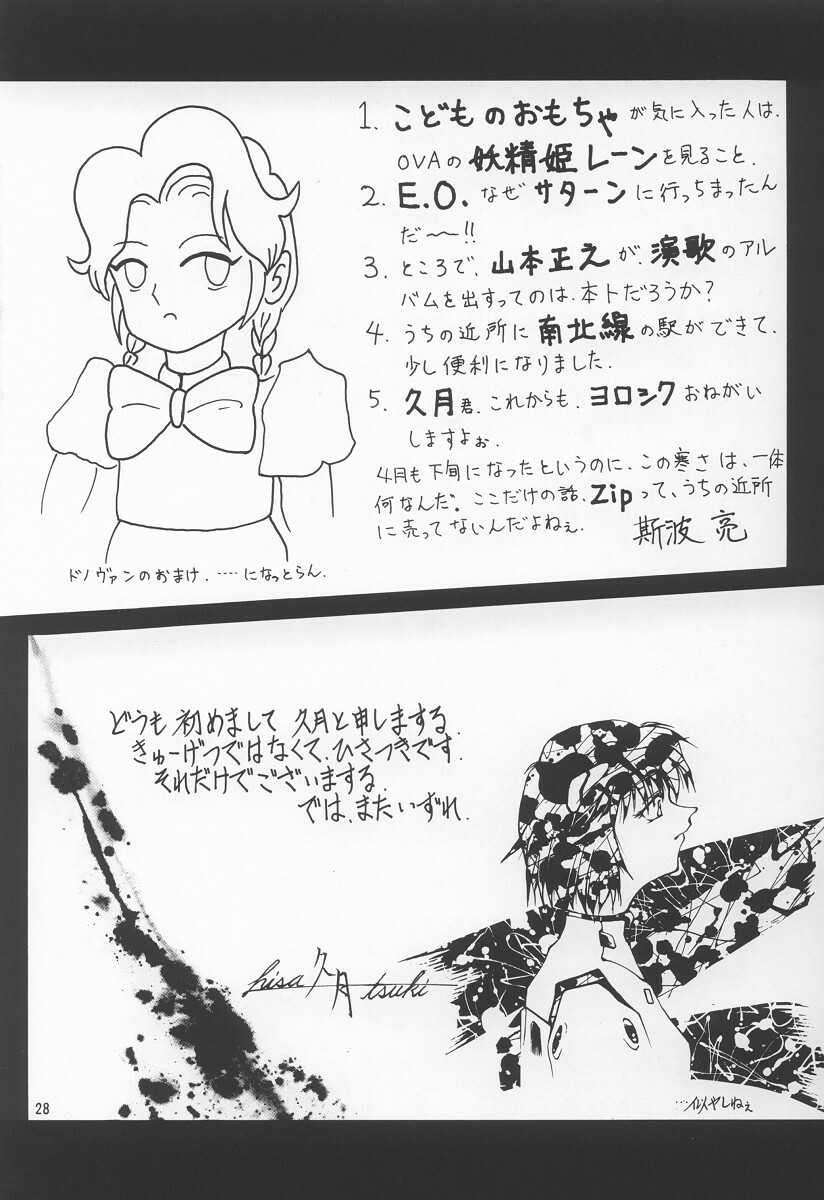 1. こどものおもちゃが気に入った人は、
OVAの妖精姫レーンを見ること.
2. E.O. なぜサターンに行っちまったん
だ〜〜!!
3. ところで、山本正之が、演歌のアル
バムを出すってのは、本トだろうか?
4. うちの近所に南北線の駅ができて、
少し便利になりました.
5. 久月君、これからも、ヨロシクおねがい
しますよぉ.
4月も下旬になったというのに、この寒さは、一体
何なんだ。ここだけの話、Zipって、うちの近所
に売ってないんだよねぇ.
斯波 亮
ドノヴァンのおまけ、……になっとらん.
どうも初めまして 久月と申しまする.
きゅーげつではなくて、ひさつきです.
それだけでございまする.
では、またいずれ.
hisa 久月 tsuki
…似やしねぇ
28